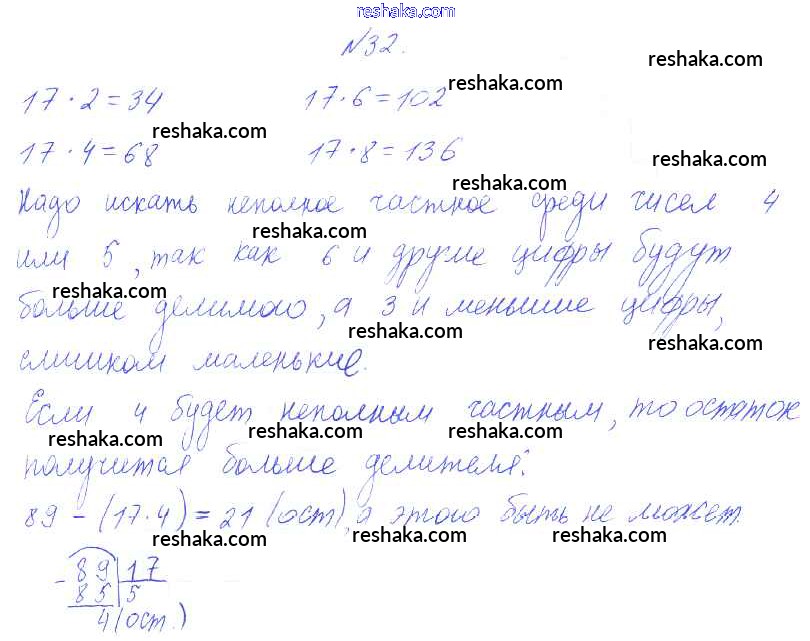 reshaka.com
№32.
reshaka.com
reshaka.com
17 · 2 = 34 17 · 6 = 102
reshaka.com
17 · 4 = 68 17 · 8 = 136
reshaka.com
reshaka.com
Надо искать неполное частное среди чисел 4
reshaka.com
или 5, так как 6 и другие цифры будут
reshaka.com
больше делимого, а 3 и меньшие цифры,
reshaka.com
reshaka.com
слишком маленькие.
Если 4 будет неполным частным, то остаток
reshaka.com reshaka.com reshaka.com
получится больше делителя:
89 - (17·4) = 21 (ост), а этого быть не может.
reshaka.com reshaka.com reshaka.com
- 89 | 17
85 | 5
4 (ост.)